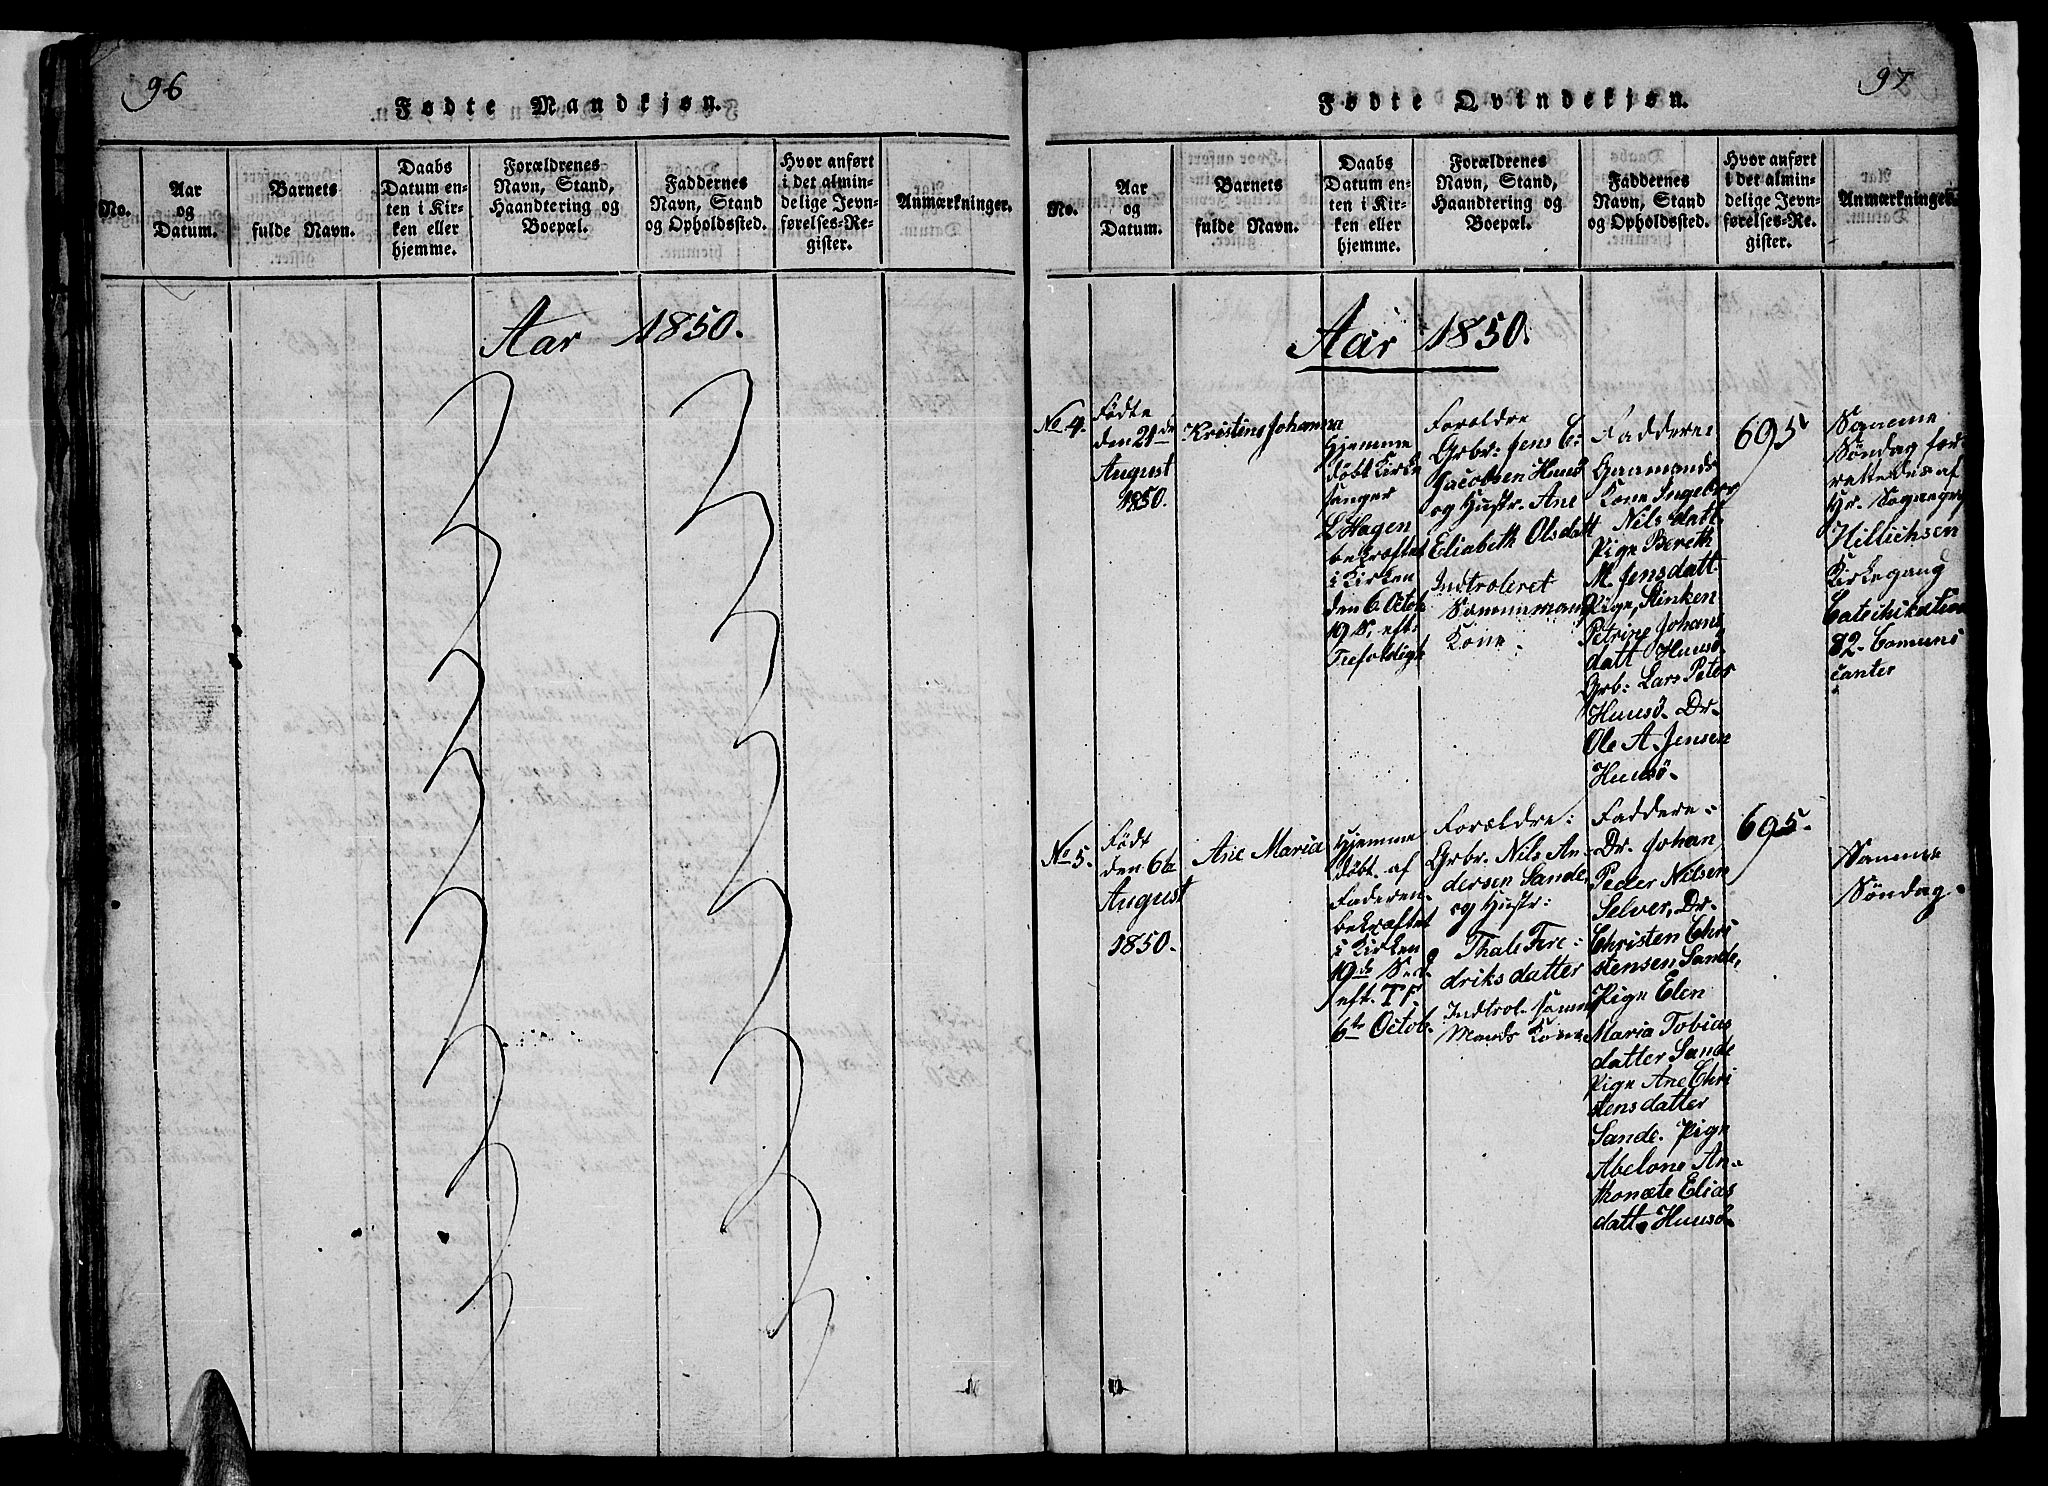 96
Fødte Mandkjøn.
No.
Aar
og
Datum.
Barnets
fulde Navn.
Daabs
Datum en-
ten i Kir-
ken eller
hjemme.
Forældrenes
Navn, Stand,
Haandtering og
Boepæl.
Faddernes
Navn, Stand
og Opholdssted.
Hvor anført
i det almin-
delige Jevn-
førelses-Re-
gister.
Anmærkninger.
Aar 1850.
97
Fødte Qvindekjøn.
No.
Aar
og
Datum.
Barnets
fulde Navn.
Daabs
Datum en-
ten i Kir-
ken eller
hjemme.
Forældrenes
Navn, Stand,
Haandtering og
Boepæl.
Faddernes
Navn, Stand
og Opholdssted.
Hvor anført
i det almin-
delige Jevn-
førelses-Re-
gister.
Anmærkninger.
Aar 1850.
No 4.
Fødte
den 21de
August
1850.
Kristine Johanna
Hjemme
døbt Kirke
sanger
L Hagen
bekræftet
i Kirken
den 6 Octob
19 S. eft:
Trefoldigh
Foreldre
Grbr: Jens C:
Jacobsen Huusø
og Hustr. Ane
Eliabeth Olsdatt
Indtroleret
Samme mands
Kone.
Faddere:
Gaamands
Kone Ingebor
Nilsdatt.
Pige Bereth
M. Jensdatt
Pige,
Petrine Johans
datt Huusø.
Grb: Lars Peter
Huusø. Dr.
Ole A. Jensen
Huusø.
695
Samme
Søndag for
rettedes af
Hr. Sognepr
Hillichsen
Kirkegang
Catechisation
82. Comuni
canter
No 5.
Født
den 6te
August
1850.
Ane Maria
Hjemme
døbt. af
Faderen.
bekræftet
i Kirken
19de S.
eft. T F.
6te Octob.
Forældre:
Grbr. Nils An-
dersen Sande,
og Hustr:
Thale Fre-
driksdatter
Indtrol. samme
Mands Kone
Faddere:
Dr. Johan
Peder Nilsen
Selver, Dr.
Christen Chri
stensen Sande,
Pige Elen
Maria Tobias
datter Sande
Pige Ane Chri
stensdatter
Sande. Pige
Abelone An-
thonæte Elias
datt. Huusø.
695.
Samme
Søndag.